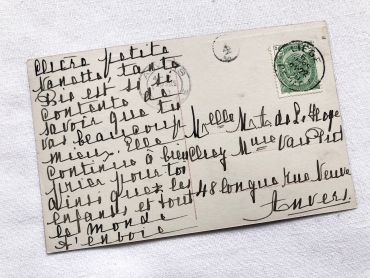 Chère petite
Nanotte, tante
Bie est si
contente de
savoir que tu
vas beaucoup
mieux. Elle
continue à bien
prier pour toi
ainsi que les
enfants et tout
le monde
t'envoie
LIEGE
Melle
chez Mme Van
48 longue rue Neuve
Anvers